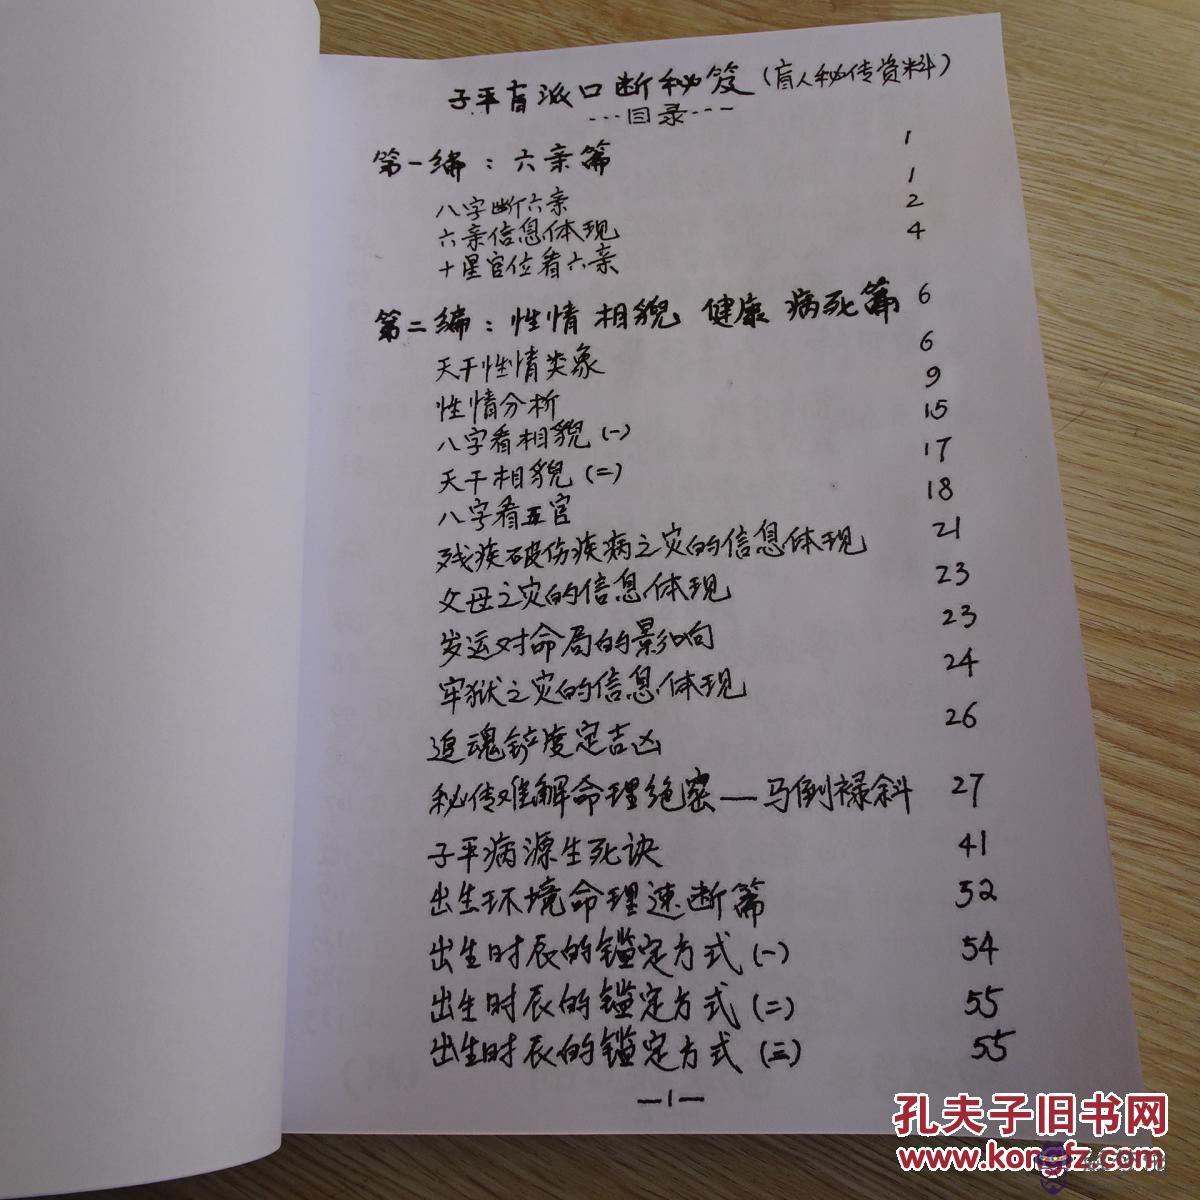 子平盲派口断秘笈(盲人秘传资料)
---目录---
第一编：六亲篇 1
八字断六亲 1
六亲信息体现 2
十星宫位看六亲 4
第二编：性情 相貌 健康 病死篇 6
天干性情类象 6
性情分析 9
八字看相貌(一) 15
天干相貌(二) 17
八字看五官 18
残疾破伤疾病之灾的信息体现 21
父母之灾的信息体现 23
岁运对命局的影响 23
牢狱之灾的信息体现 24
追魂铲度定吉凶 26
秘传难解命理绝密—马倒禄斜 27
子平病源生死诀 41
出生环境命理速断篇 52
出生时辰的鑑定方式(一) 54
出生时辰的鑑定方式(二) 55
出生时辰的鑑定方式(三) 55
—1—
孔夫子旧书网
www.kongfz.com